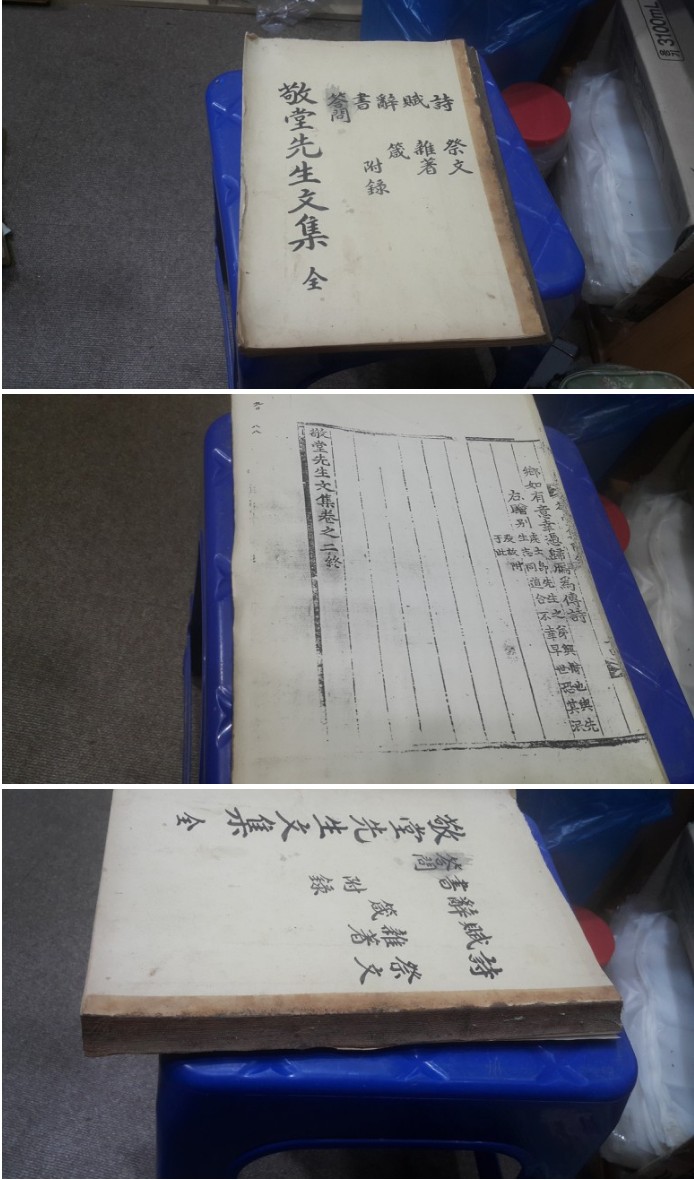 詩 賦 辭 書 答問
祭文
雜著
箴
附錄
敬堂先生文集 全
3100mL
鄉如有意幸憑歸鴈爲傳詩
右贈別
敬堂先生文集卷之二終
敬堂先生文集 全
詩 賦 辭 書 答問
祭文
雜著
箴
附錄